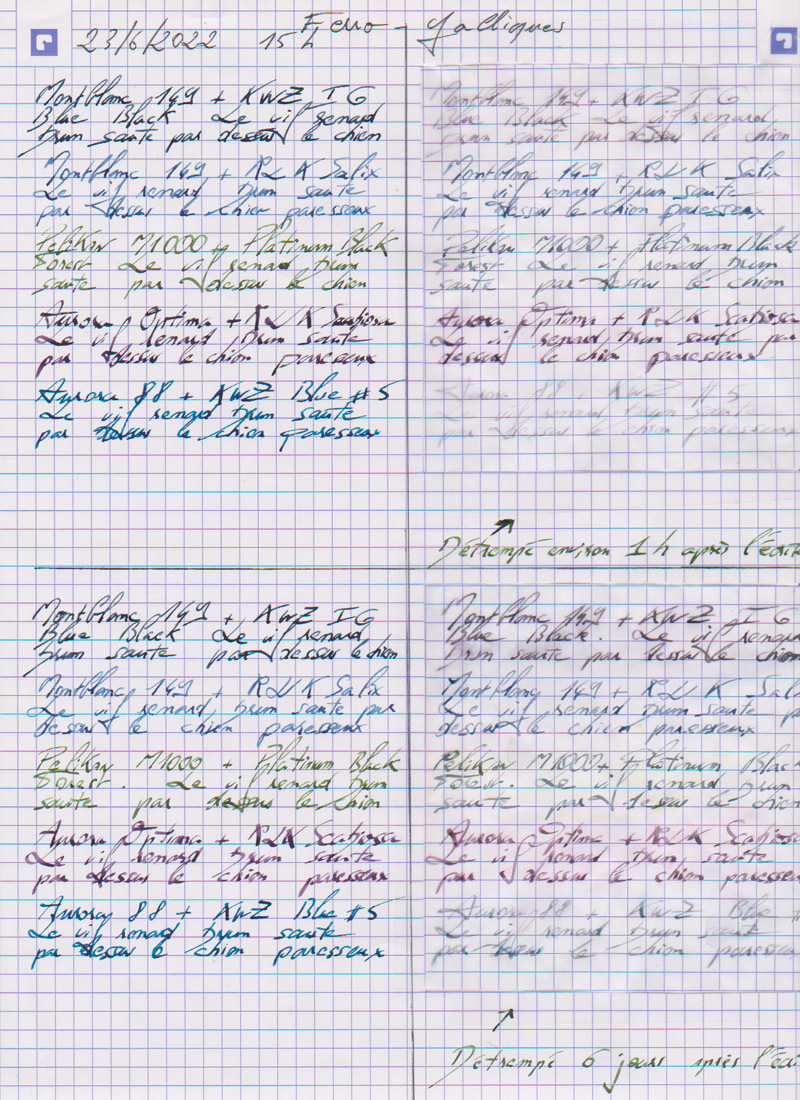 23/6/2022 15h Ferro-galliques
Montblanc 149 + KWZ IG
Blue Black Le vif renard
brun saute par dessus le chien
Montblanc 149 + R&K Salix
Le vif renard brun saute
par dessus le chien paresseux
Pelikan M1000 + Platinum Black
Forest Le vif renard brun
saute par dessus le chien
Aurora Optima + R&K Scabiosa
Le vif renard brun saute
par dessus le chien paresseux
Aurora 88 + KWZ Blue #5
Le vif renard brun saute
par dessus le chien paresseux
Montblanc 149 + KWZ IG
Blue Black Le vif renard
brun saute par dessus le chien
Montblanc 149 + R&K Salix
Le vif renard brun saute
par dessus le chien paresseux
Pelikan M1000 + Platinum Black
Forest Le vif renard brun
saute par dessus le chien
Aurora Optima + R&K Scabiosa
Le vif renard brun saute par
dessus le chien paresseux
Aurora 88 + KWZ #5
Le vif renard brun saute
par dessus le chien paresseux
Détrempé environ 1h après l'écrit
Montblanc 149 + KWZ IG
Blue Black Le vif renard
brun saute par dessus le chien
Montblanc 149 + R&K Salix
Le vif renard brun saute par
dessus le chien paresseux
Pelikan M1000 + Platinum Black
Forest. Le vif renard brun
saute par dessus le chien
Aurora Optima + R&K Scabiosa
Le vif renard brun saute
par dessus le chien paresseux
Aurora 88 + KWZ Blue #5
Le vif renard brun saute
par dessus le chien paresseux
Montblanc 149 + KWZ IG
Blue Black. Le vif renard
brun saute par dessus le chien
Montblanc 149 + R&K Sal
Le vif renard brun saute par
dessus le chien paresseux
Pelikan M1000 + Platinum Black
Forest. Le vif renard brun
saute par dessus le chien
Aurora Optima + R&K Scabiosa
Le vif renard brun saute
par dessus le chien paresseux
Aurora 88 + KWZ Blue #
Le vif renard brun saute
par dessus le chien paresseux
Détrempé 6 jours après l'écri